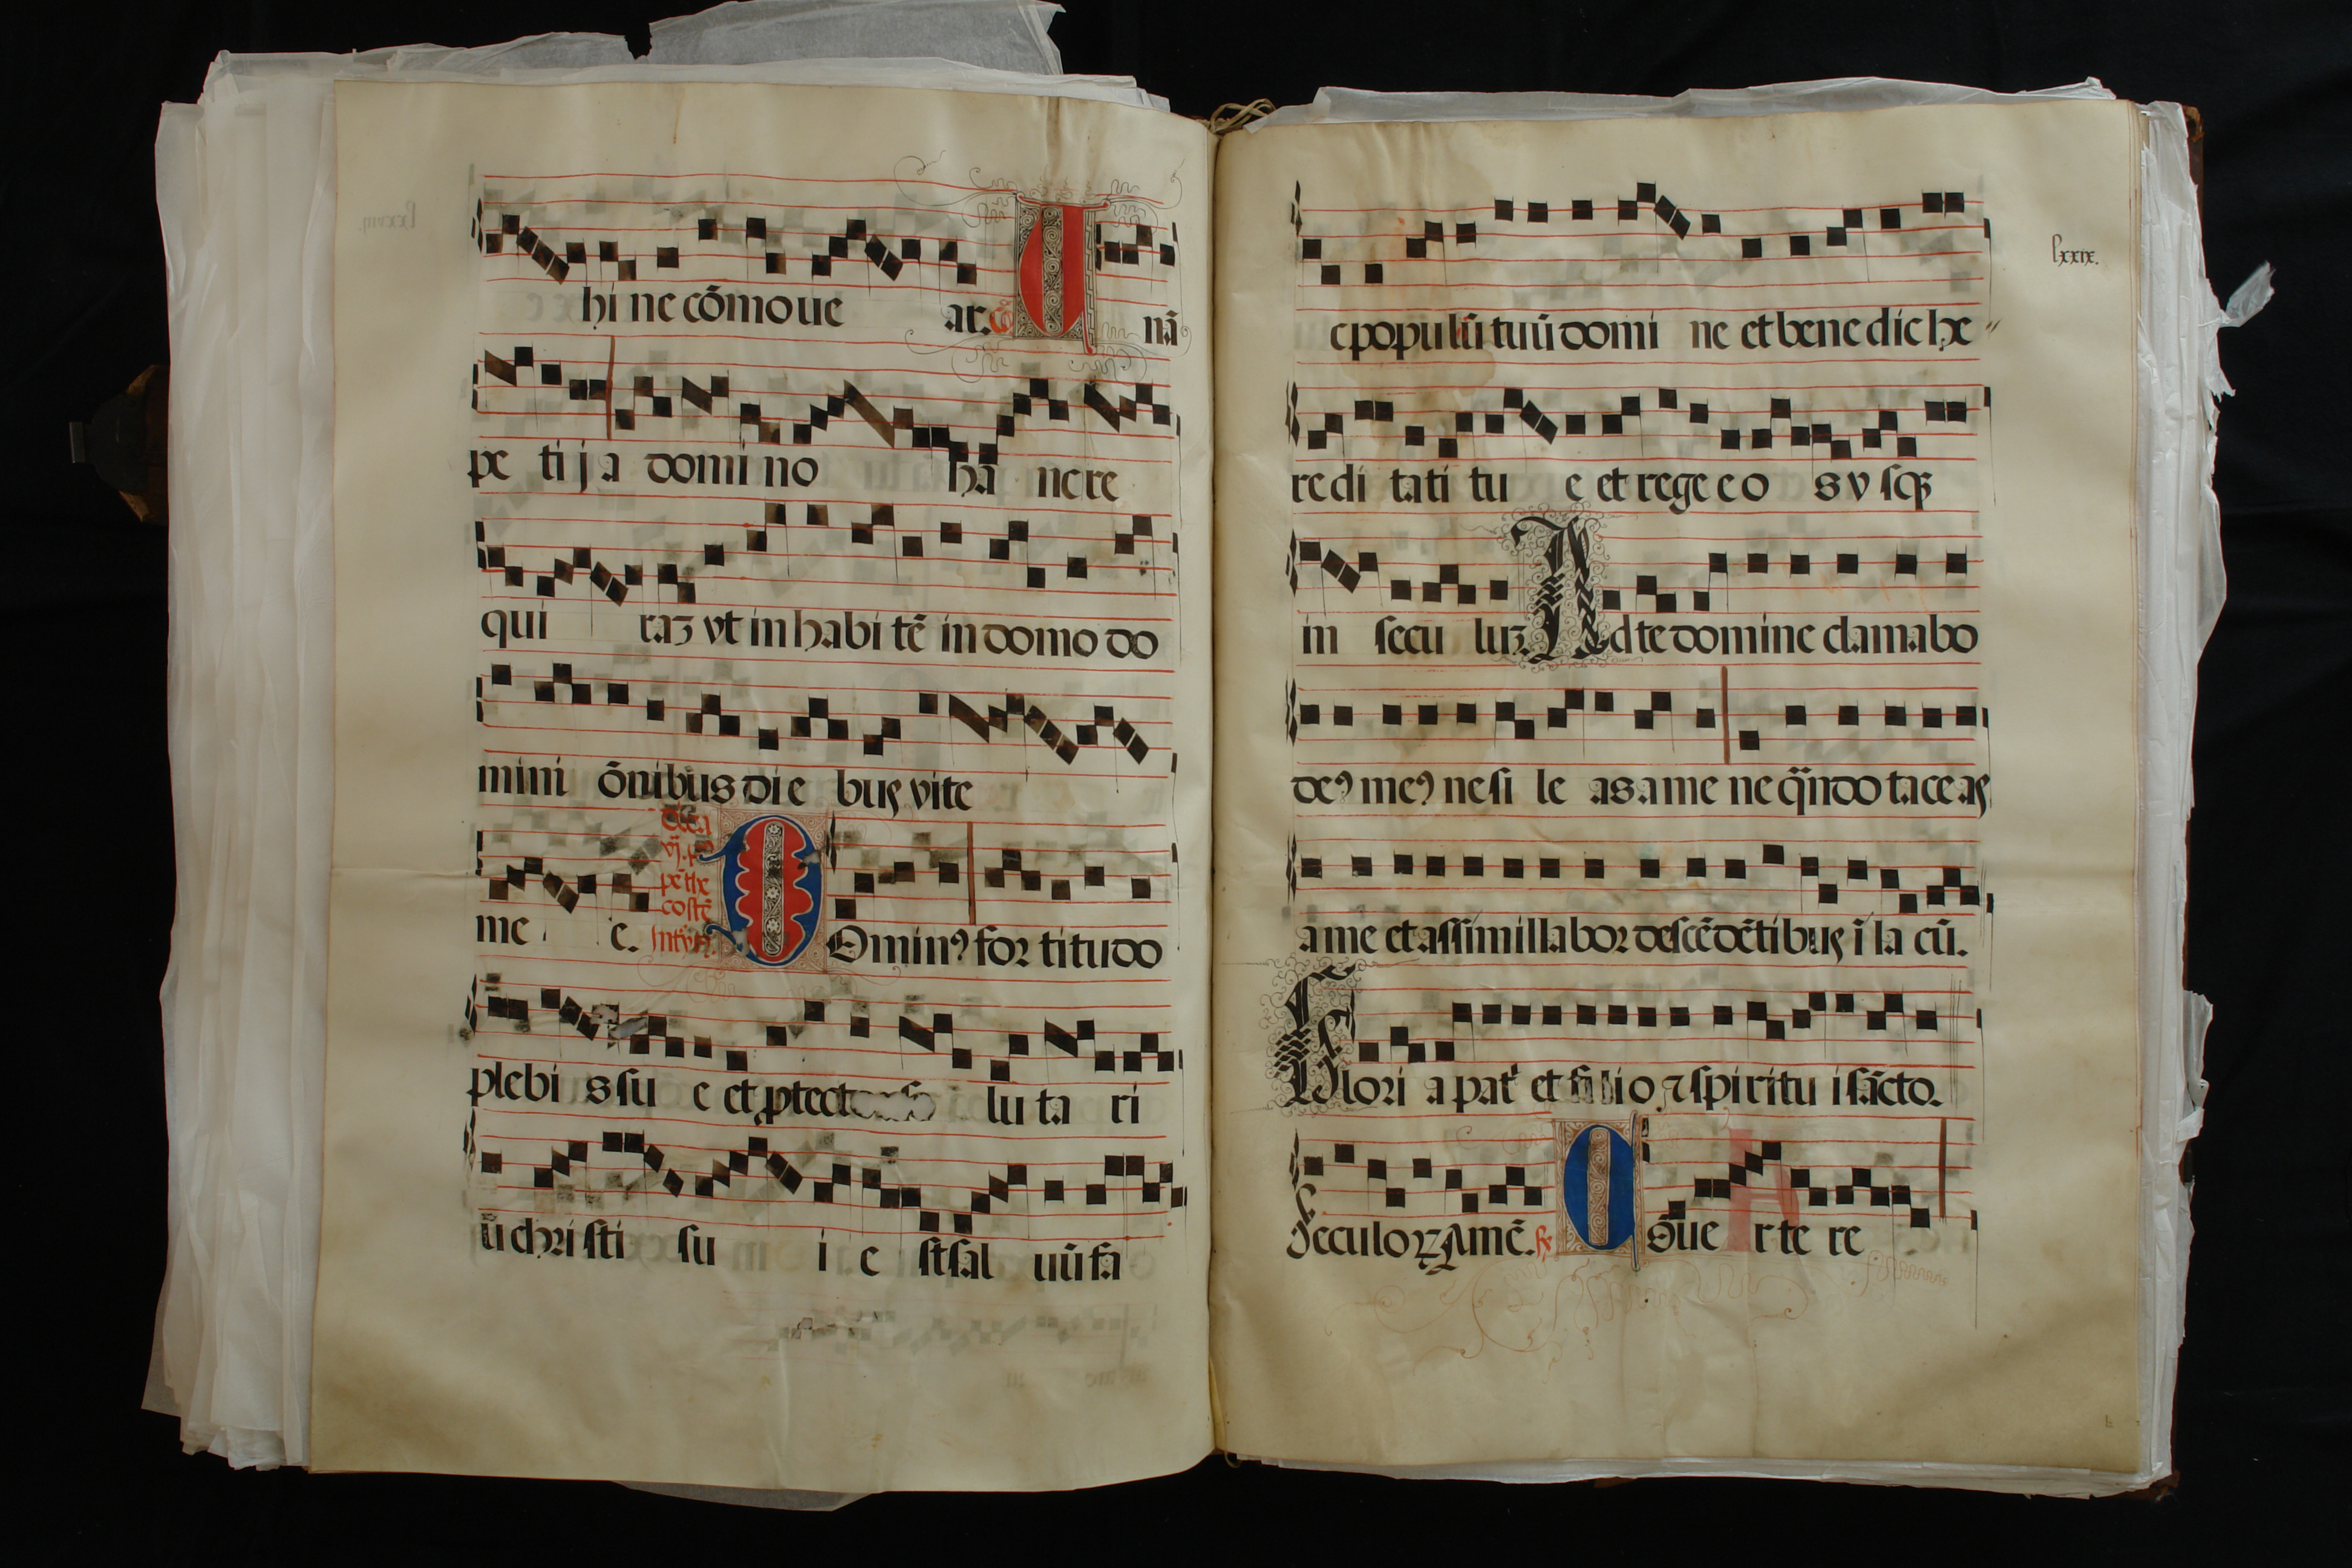 hi ne cōmoue ar. cō U nā
pe ti j a domi no ha nc re
qui raʒ vt in habi tē in domo do
mini ōnibus di e bus vite
me e. Dñica vj. pꝰ pēthe costē Intꝰ. D Ominꝰ for titudo
plebi s su e et ꝓtect lu ta ri
ū chri sti su i e st sal uū fa
lxxix.
c popu lū tuū domi ne et bene dic he
re di tati tu e et rege e o s v sqꝫ
in secu luꝫ. Ad te domine clamabo
deꝰ meꝰ ne si le as a me ne qn̄do tace as
a me et assimillabor descēdētibus ī la cū.
Glori a pat' et filio ⁊ spiritu i sācto.
Seculoꝝ Amē. ꝶ C Ōue rte re